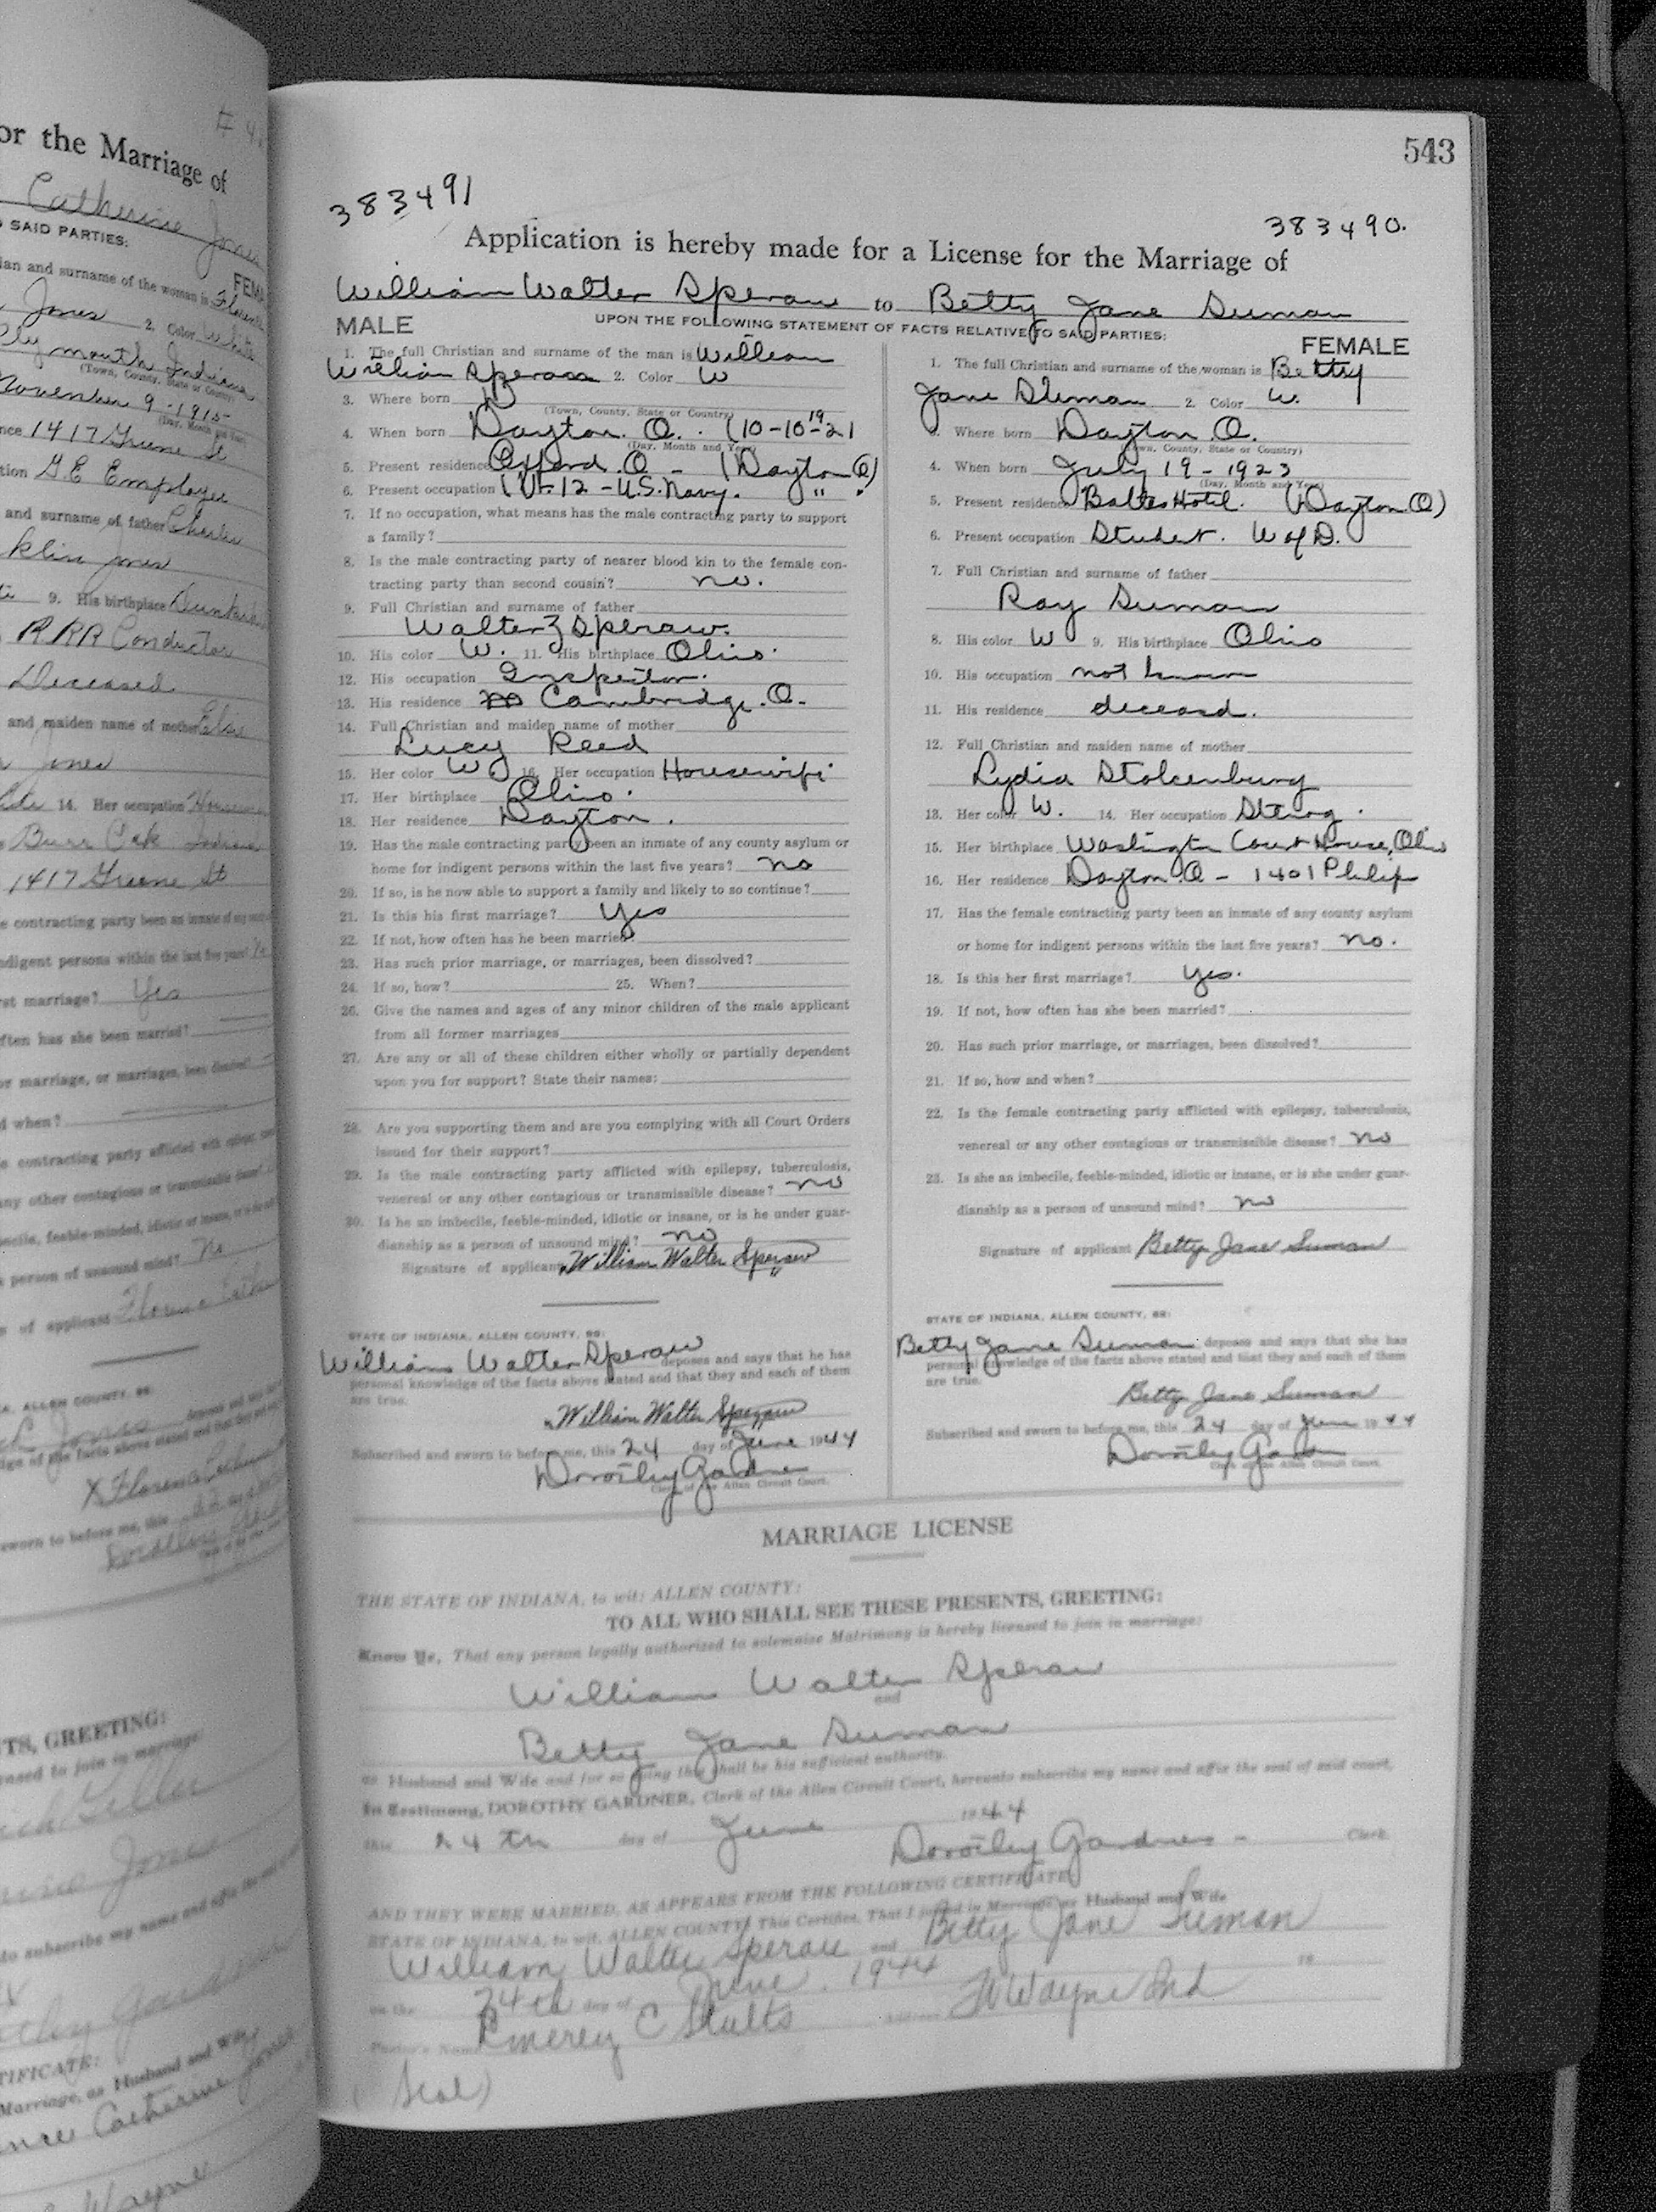 or the Marriage of
Catherine Jones
SAID PARTIES:
ian and surname of the woman is
FEMA
Jones 2. Color White
Plymouth Indiana
(Town, County, State or Country)
November 9 - 1915
nce 1417 Greene St
tion G.E Employee
and surname of father Charles
klin Jones
9. His birthplace
RRR Conductor
Deceased
and maiden name of mother Elsie
Jones
14. Her occupation
Burr Oak Indiana
1417 Greene St
e contracting party been an inmate of any
ndigent persons within the last five years?
rst marriage? Yes
ften has she been married?
or marriage, or marriages, been dissolved?
d when?
e contracting party afflicted with
any other contagious or transmissible
becile, feeble-minded, idiotic or insane,
person of unsound mind? No
of applicant
ALLEN COUNTY, ss:
Jones
sworn to before me, this
TS, GREETING:
ensed to join in marriage:
Jones
to subscribe my name and affix the
TIFICATE:
Marriage, as Husband and Wife
Catherine
Wayne
543
383491
383490.
Application is hereby made for a License for the Marriage of
William Walter Speraw to Betty Jane Suman
UPON THE FOLLOWING STATEMENT OF FACTS RELATIVE TO SAID PARTIES:
MALE
1. The full Christian and surname of the man is William
William Speraw 2. Color W
3. Where born
(Town, County, State or Country)
4. When born Dayton. O. (10-10-1921
(Day, Month and Year)
5. Present residence Oxford. O - (Dayton O)
6. Present occupation (V-12 - U.S. Navy. " "
7. If no occupation, what means has the male contracting party to support
a family?
8. Is the male contracting party of nearer blood kin to the female con-
tracting party than second cousin? no.
9. Full Christian and surname of father
Walter Z Speraw.
10. His color W. 11. His birthplace Ohio.
12. His occupation Inspector.
13. His residence Cambridge. O.
14. Full Christian and maiden name of mother
Lucy Reed
15. Her color W. 16. Her occupation Housewife
17. Her birthplace Ohio.
18. Her residence Dayton.
19. Has the male contracting party been an inmate of any county asylum or
home for indigent persons within the last five years? no
20. If so, is he now able to support a family and likely to so continue?
21. Is this his first marriage? Yes
22. If not, how often has he been married?
23. Has such prior marriage, or marriages, been dissolved?
24. If so, how? 25. When?
26. Give the names and ages of any minor children of the male applicant
from all former marriages
27. Are any or all of these children either wholly or partially dependent
upon you for support? State their names:
28. Are you supporting them and are you complying with all Court Orders
issued for their support?
29. Is the male contracting party afflicted with epilepsy, tuberculosis,
venereal or any other contagious or transmissible disease? no
30. Is he an imbecile, feeble-minded, idiotic or insane, or is he under guar-
dianship as a person of unsound mind? no
Signature of applicant William Walter Speraw
STATE OF INDIANA, ALLEN COUNTY, ss:
William Walter Speraw deposes and says that he has
personal knowledge of the facts above stated and that they and each of them
are true.
William Walter Speraw
Subscribed and sworn to before me, this 24 day of June 1944
Dorothy Gardner
Clerk of the Allen Circuit Court.
FEMALE
1. The full Christian and surname of the woman is Betty
Jane Suman 2. Color W.
3. Where born Dayton O.
(Town, County, State or Country)
4. When born July 19 - 1923
(Day, Month and Year)
5. Present residence Baltes Hotel. (Dayton O)
6. Present occupation Student. U of D.
7. Full Christian and surname of father
Ray Suman
8. His color W 9. His birthplace Ohio
10. His occupation not known
11. His residence deceased.
12. Full Christian and maiden name of mother
Lydia Stolzenburg
13. Her color W. 14. Her occupation Stenog.
15. Her birthplace Washington Court House, Ohio
16. Her residence Dayton O - 1401 Philip
17. Has the female contracting party been an inmate of any county asylum
or home for indigent persons within the last five years? no.
18. Is this her first marriage? yes.
19. If not, how often has she been married?
20. Has such prior marriage, or marriages, been dissolved?
21. If so, how and when?
22. Is the female contracting party afflicted with epilepsy, tuberculosis,
venereal or any other contagious or transmissible disease? no
23. Is she an imbecile, feeble-minded, idiotic or insane, or is she under guar-
dianship as a person of unsound mind? no
Signature of applicant Betty Jane Suman
STATE OF INDIANA, ALLEN COUNTY, ss:
Betty Jane Suman deposes and says that she has
personal knowledge of the facts above stated and that they and each of them
are true.
Betty Jane Suman
Subscribed and sworn to before me, this 24 day of June 1944
Dorothy Gardner
Clerk of the Allen Circuit Court.
MARRIAGE LICENSE
THE STATE OF INDIANA, to wit: ALLEN COUNTY:
TO ALL WHO SHALL SEE THESE PRESENTS, GREETING:
Know Ye, That any person legally authorized to solemnize Matrimony is hereby licensed to join in marriage:
William Walter Speraw
and
Betty Jane Suman
as Husband and Wife and for so doing this shall be his sufficient authority.
In Testimony, DOROTHY GARDNER, Clerk of the Allen Circuit Court, hereunto subscribe my name and affix the seal of said court,
this 24th day of June 1944
Dorothy Gardner - Clerk
AND THEY WERE MARRIED, AS APPEARS FROM THE FOLLOWING CERTIFICATE:
STATE OF INDIANA, to wit, ALLEN COUNTY: This Certifies, That I joined in Marriage as Husband and Wife
William Walter Speraw and Betty Jane Suman
on the 24th day of June. 1944 19
Pastor's Name Emerey C Stults Address Ft Wayne Ind
(Seal)